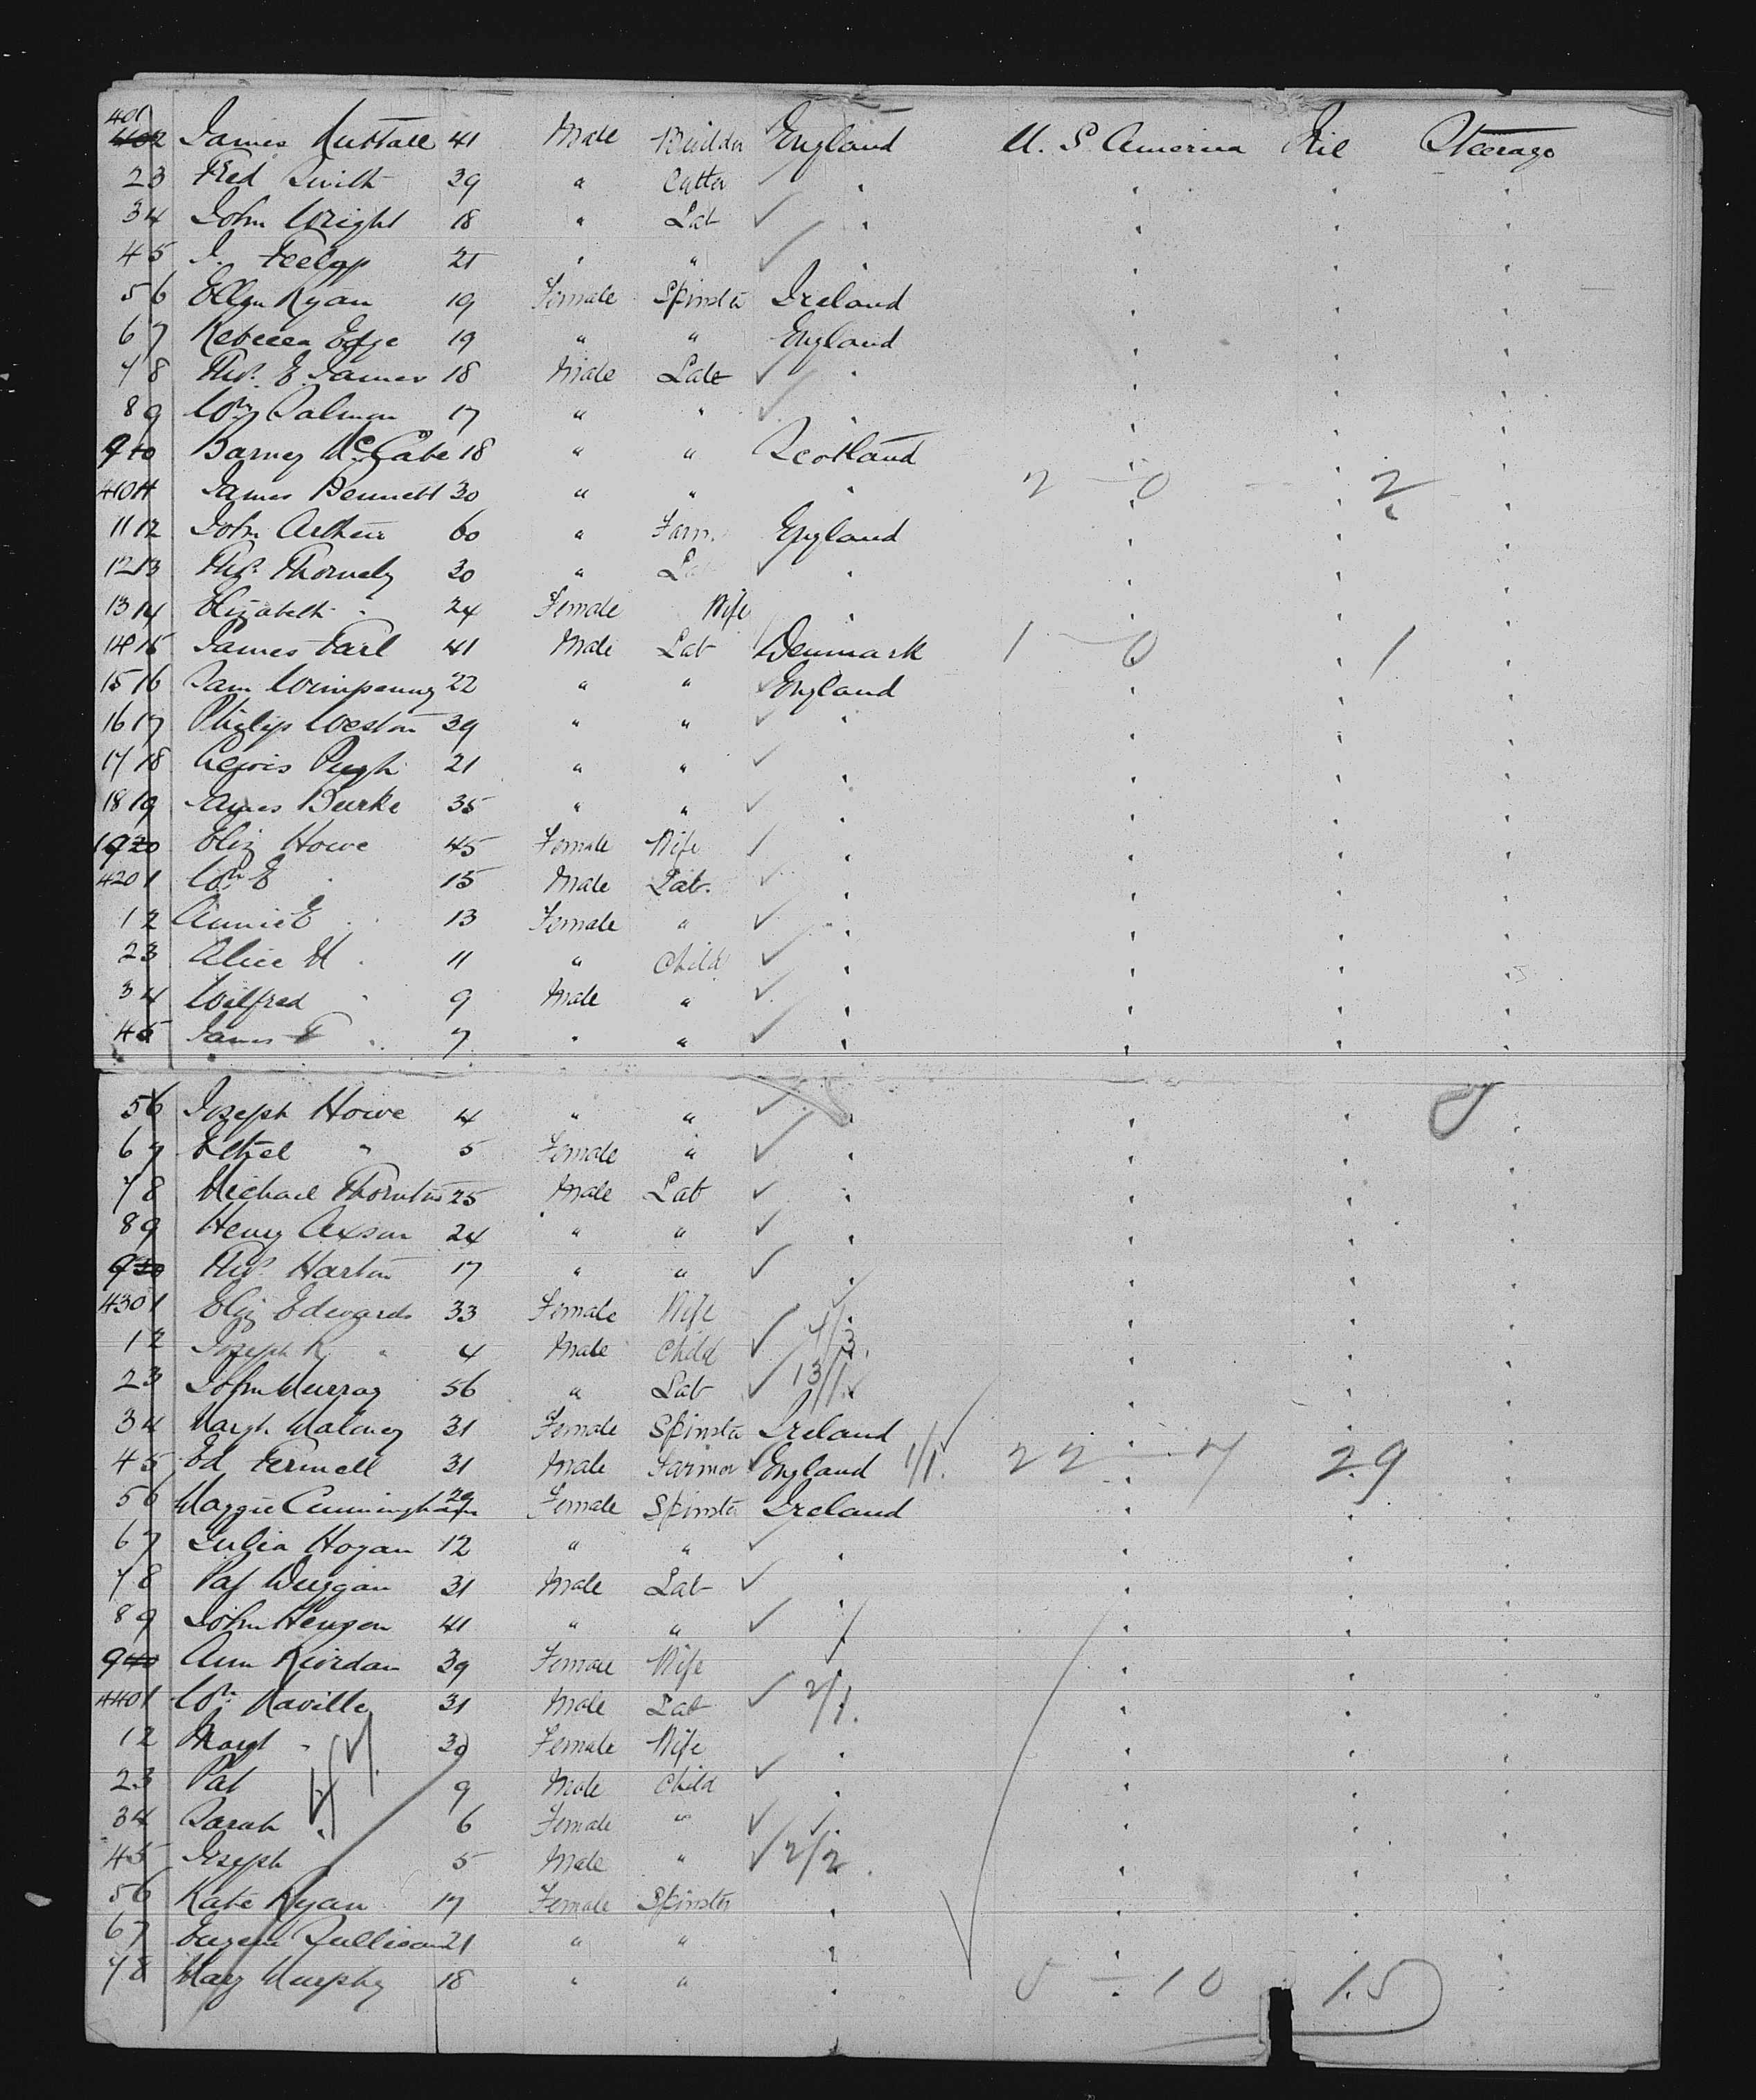 401
402 James Nuttall 41 Male Builder England U. S. America Nil Steerage
23 Fred Smith 39 " Cutter "
34 John Wright 18 " Lab "
45 J. 21 " " "
56 Ellen Ryan 19 Female Spinster Ireland
67 Rebecca Edge 19 " " England
78 Thos. E James 18 Male Lab "
89 Wm Salmon 17 " " "
910 Barney McCabe 18 " " Scotland
41011 James Bennett 30 " " " 2 - 0 - 2
1112 John Arthur 60 " Farm. England
1213 Thos. Thornely 30 " Lab "
1314 Elizabeth " 24 Female Wife "
1415 James Farl 41 Male Lab Denmark 1 - 0 1
1516 Sam Wimpenny 22 " " England
1617 Philip Weston 39 " " "
1718 Lewis Pugh 21 " " "
1819 James Burke 35 " " "
1920 Eliz Howe 45 Female Wife "
4201 Wm E " 15 Male Lab. "
12 Annie E " 13 Female " "
23 Alice M " 11 " Child "
34 Wilfred " 9 Male " "
45 James F " 7 " " "
56 Joseph Howe 4 " " "
67 Ethel " 5 Female " "
78 Michael Thornton 25 Male Lab "
89 Henry Axson 24 " " "
930 Thos. Harton 17 " " "
4301 Eliz Edwards 33 Female Wife "
12 Joseph R " 4 Male Child " 1/3
23 John Murray 56 " Lab " 13/1
34 Margt. Maloney 31 Female Spinster Ireland
45 Ed Fermell 31 Male Farmer England 1/1. 22 - 7 29
56 Maggie Cunningham 20 Female Spinster Ireland
67 Julia Hogan 12 " " "
78 Pat Duggan 31 Male Lab "
89 John 41 " " "
940 Ann Riordan 39 Female Wife "
4401 Wm Naville 31 Male Lab 2/1.
12 Margt " 30 Female Wife "
23 Pat 9 Male Child "
34 Sarah " 6 Female " "
45 Joseph 5 Male " 2/2 "
56 Kate Ryan 17 Female Spinster "
67 Eugene Sullivan 21 " " "
78 Mary Murphy 18 " " " 5 - 10 15